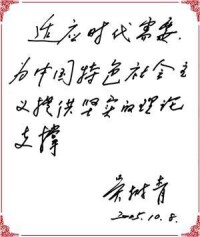 适应时代需要，
为中国特色社会主
义提供坚实的理论
支撑
吴树青
2005.10.8.